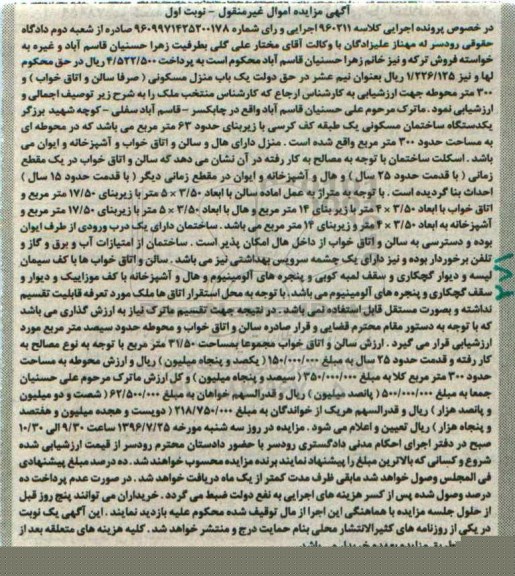 آگهی مزایده اموال غیرمنقول - نوبت اول
در خصوص پرونده اجرایی کلاسه ۹۶۰۲۱۱ اجرایی و رای شماره ۹۶۰۹۹۷۱۴۲۵۳۰۰۱۷۸ صادره از شعبه دوم دادگاه
حقوقی رودسر له مهناز علیزادگان با وکالت آقای مختار علی گلی بطرفیت زهرا حسنیان قاسم آباد و غیره به
خواسته فروش ترکه و نیز خانم زهرا حسنیان قاسم آباد محکوم است به پرداخت ۴/۵۲۲/۵۰۰ ریال در حق محکوم
لها و نیز ۱/۲۲۶/۱۲۵ ریال بعنوان نیم عشر در حق دولت یک باب منزل مسکونی ( صرفا سالن و اتاق خواب ) و
۳۰۰ متر محوطه جهت ارزشیابی به کارشناس ارجاع که کارشناس منتخب ملک را به شرح زیر توصیف اجمالی و
ارزشیابی نمود . ماترک مرحوم علی حسنیان قاسم آباد واقع در چابکسر - قاسم آباد سفلی - کوچه شهید برزگر
یکدستگاه ساختمان مسکونی یک طبقه کف کرسی با زیربنای حدود ۶۳ متر مربع می باشد که در محوطه ای
به مساحت حدود ۳۰۰ متر مربع واقع شده است . منزل دارای هال و سالن و اتاق خواب و آشپزخانه و ایوان می
باشد . اسکلت ساختمان با توجه به مصالح به کار رفته در آن نشان می دهد که سالن و اتاق خواب در یک مقطع
زمانی ( با قدمت حدود ۲۵ سال ) و هال و آشپزخانه و ایوان در مقطع زمانی دیگر ( با قدمت حدود ۱۵ سال )
احداث بنا گردیده است . با توجه به متراژ به عمل آماده سالن با ابعاد ۳/۵۰ × ۵ متر با زیربنای ۱۷/۵۰ متر مربع و
اتاق خواب با ابعاد ۳/۵۰ × ۴ متر با زیر بنای ۱۴ متر مربع و هال با ابعاد ۳/۵۰ × ۵ متر با زیربنای ۱۷/۵۰ متر مربع و
آشپزخانه به ابعاد ۳/۵۰ × ۴ متر و زیربنای ۱۴ متر مربع می باشد . ساختمان دارای یک درب ورودی از طرف ایوان
بوده و دسترسی به سالن و اتاق خواب از داخل هال امکان پذیر است . ساختمان از امتیازات آب و برق و گاز و
تلفن برخوردار بوده و نیز دارای یک چشمه سرویس بهداشتی نیز می باشد . سالن و اتاق خواب ها با کف سیمان
لیسه و دیوار گچکاری و سقف لمبه کوبی و پنجره های آلومینیوم و هال و آشپزخانه با کف موزاییک و دیوار و
سقف گچکاری و پنجره های آلومینیوم می باشد . با توجه به محل استقرار اتاق ها ملک مورد تعرفه قابلیت تقسیم
نداشته و بصورت مستقل قابل استفاده نمی باشد . در نتیجه جهت تقسیم ماترک نیاز به ارزش گذاری می باشد
که با توجه به دستور مقام محترم قضایی و قرار صادره سالن و اتاق خواب و محوطه حدود سیصد متر مربع مورد
ارزشیابی قرار می گیرد . ارزش سالن و اتاق خواب مجموعا بمساحت ۳۱/۵۰ متر مربع با توجه به نوع مصالح به
کار رفته و قدمت حدود ۲۵ سال به مبلغ ۱۵۰/۰۰۰/۰۰۰ ( یکصد و پنجاه میلیون ) ریال و ارزش محوطه به مساحت
حدود ۳۰۰ متر مربع کلا به مبلغ ۳۵۰/۰۰۰/۰۰۰ ( سیصد و پنجاه میلیون ) و کل ارزش ماترک مرحوم علی حسنیان
جمعا به مبلغ ۵۰۰/۰۰۰/۰۰۰ ( پانصد میلیون ) ریال و قدرالسهم خواهان به مبلغ ۶۲/۵۰۰/۰۰۰ ( شصت و دو میلیون
و پانصد هزار ) ریال و قدرالسهم هریک از خواندگان به مبلغ ۲۱۸/۷۵۰/۰۰۰ ( دویست و هجده میلیون و هفتصد
و پنجاه هزار ) ریال تعیین و اعلام می شود . مزایده در روز سه شنبه مورخه ۱۳۹۶/۷/۲۵ ساعت ۹/۳۰ الی ۱۰/۳۰
صبح در دفتر اجرای احکام مدنی دادگستری رودسر با حضور دادستان محترم رودسر از قیمت ارزشیابی شده
شروع و کسانی که بالاترین مبلغ را پیشنهاد نمایند برنده مزایده محسوب خواهند شد . ده درصد مبلغ پیشنهادی
فی المجلس وصول خواهد شد مابقی ظرف مدت کمتر از یک ماه دریافت خواهد شد . در صورت عدم پرداخت ده
درصد وصول شده پس از کسر هزینه های اجرایی به نفع دولت ضبط می گردد . خریداران می توانند پنج روز قبل
از حلول جلسه مزایده با هماهنگی این اجرا از مال توقیف شده محکوم علیه بازدید نمایند . این آگهی یک نوبت
در یکی از روزنامه های کثیرالانتشار محلی بنام حمایت درج و منتشر خواهد شد . کلیه هزینه های متعلقه بعد از
۲۷۸